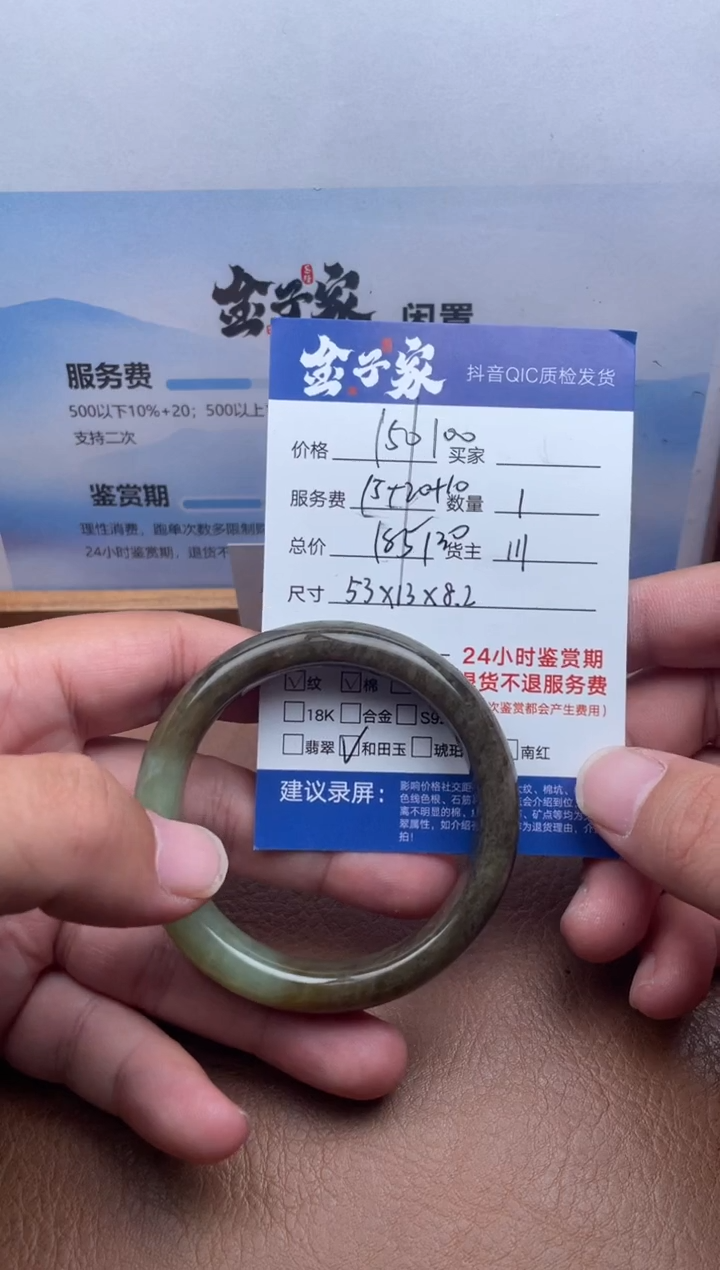 金子家 闲置
服务费
500以下10%+20；500以上
支持二次
鉴赏期
理性消费，跑单次数多限制购
24小时鉴赏期，退货不
金子家 抖音QIC质检发货
价格 150 100 买家
服务费 15+20+10 数量 1
总价 185 130 货主 川
尺寸 53×13×8.2
24小时鉴赏期
退货不退服务费
次鉴赏都会产生费用）
纹 棉
18K 合金 S9
翡翠 和田玉 琥珀 南红
建议录屏：
影响价格社交距 纹、棉坑、
色线色根、石筋 会介绍到位
离不明显的棉、 、矿点等均为
翠属性，如介绍 作为退货理由，介
拍！